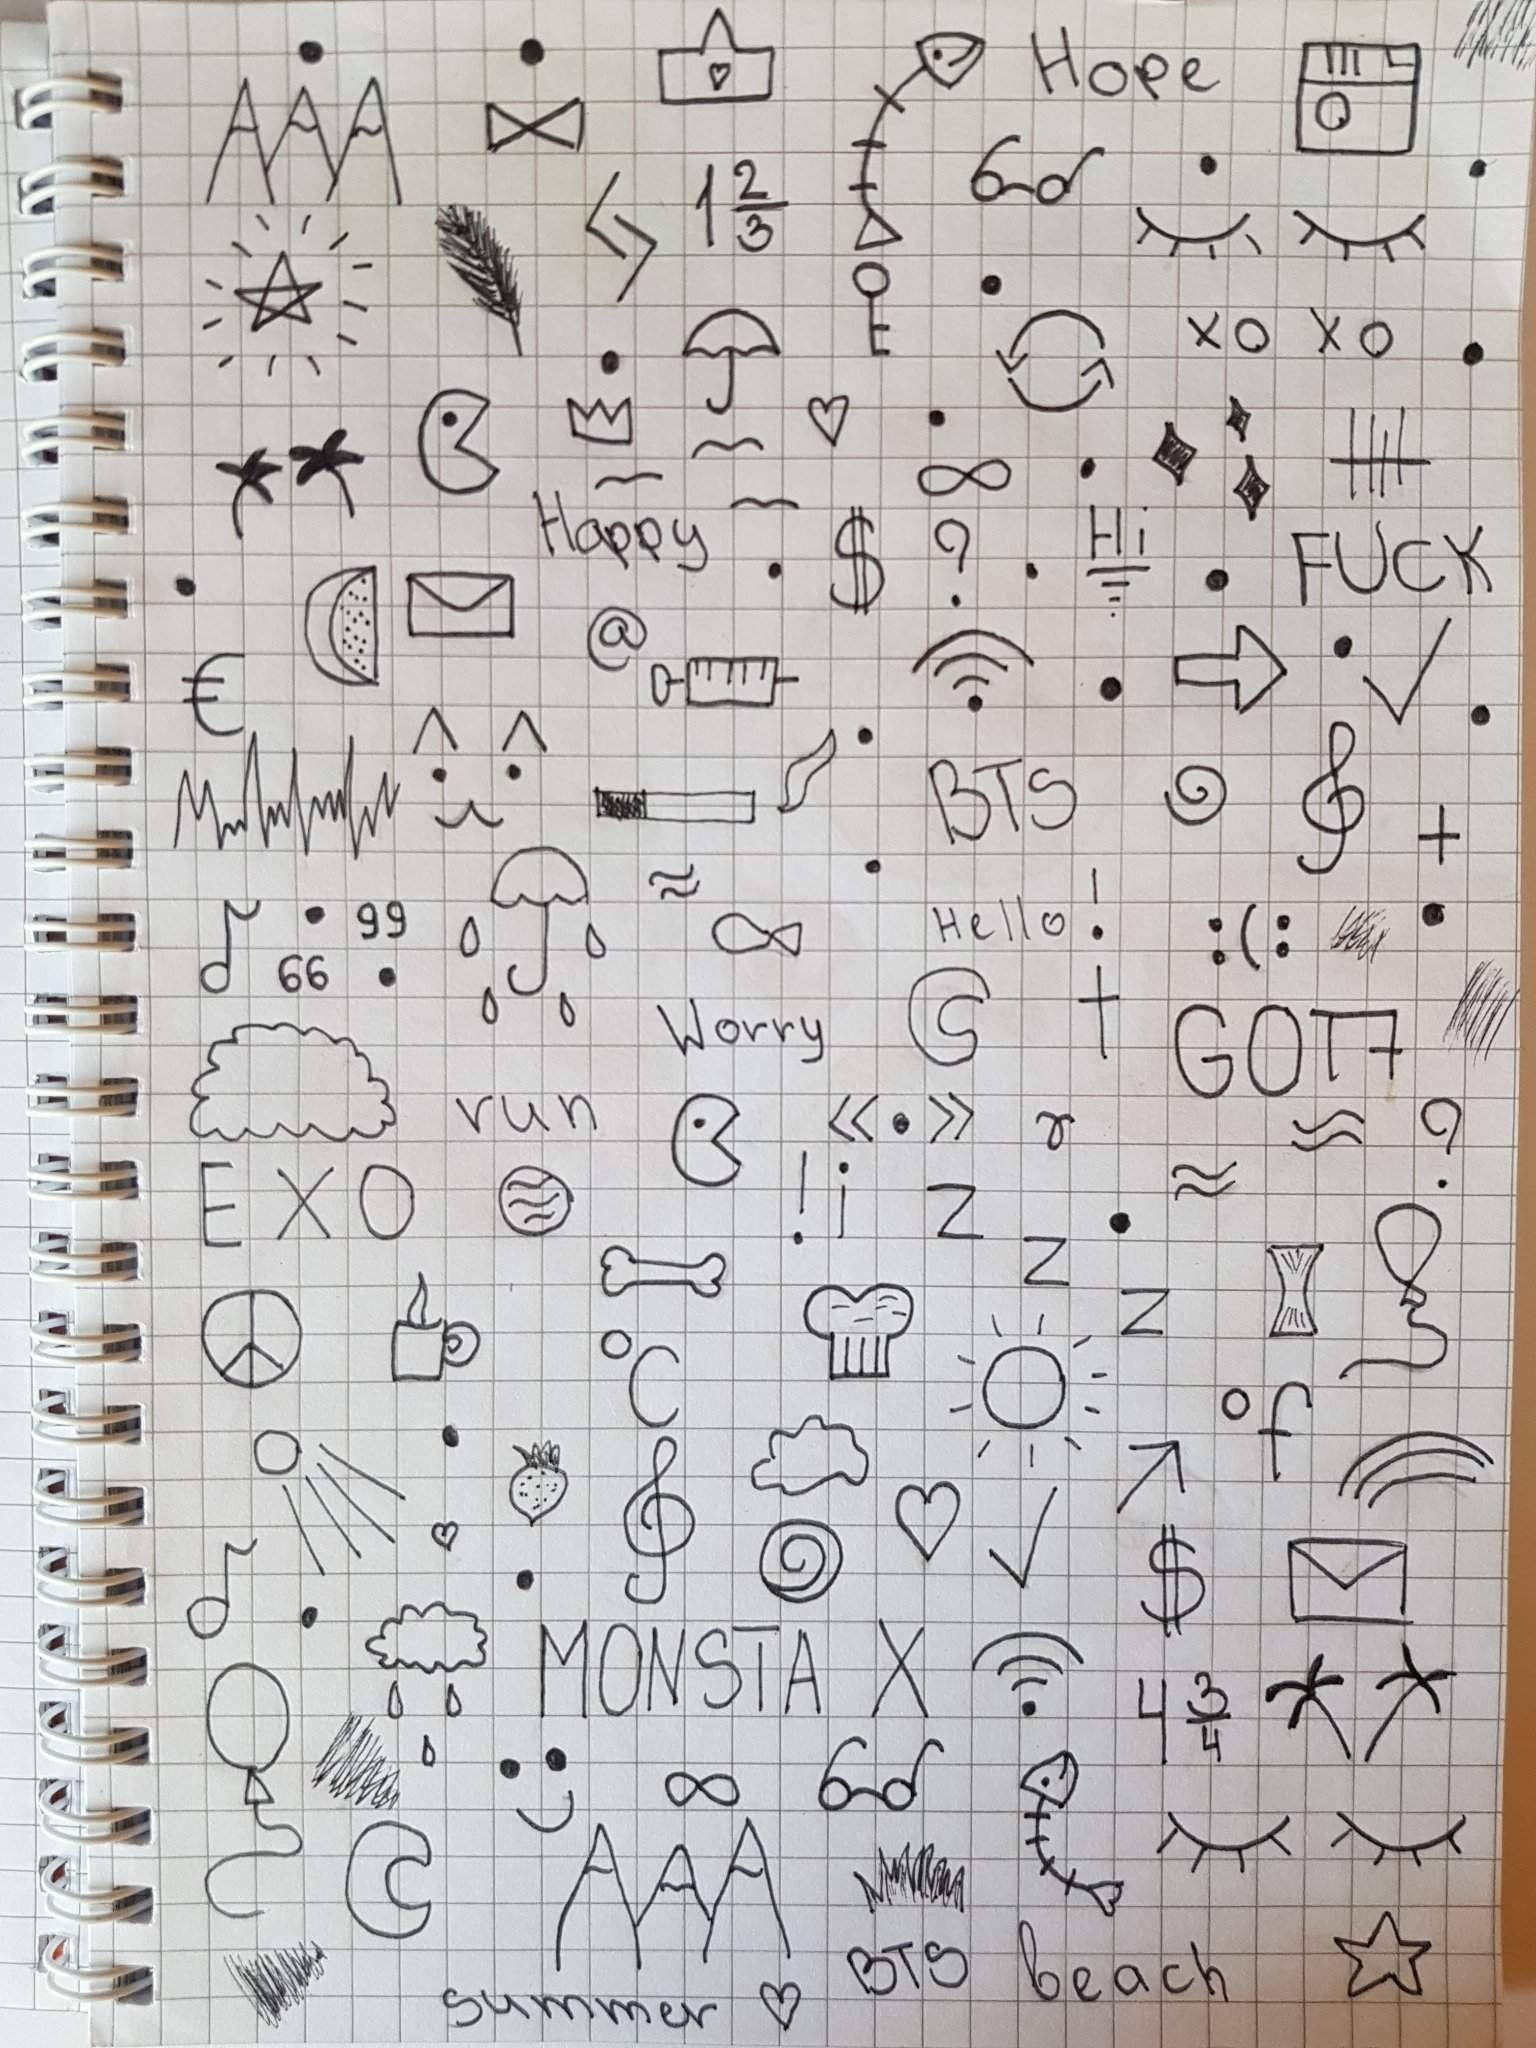 Hope
1 2/3
xo xo
Happy
$ ? Hi FUCK
@
€
BTS
+
99
66
Hello!
:(:
Worry
GOT7
run
« • »
r
?
EXO
! i
z
z
z
°C
°f
$
MONSTA X
4 3/4
BTS beach
summer